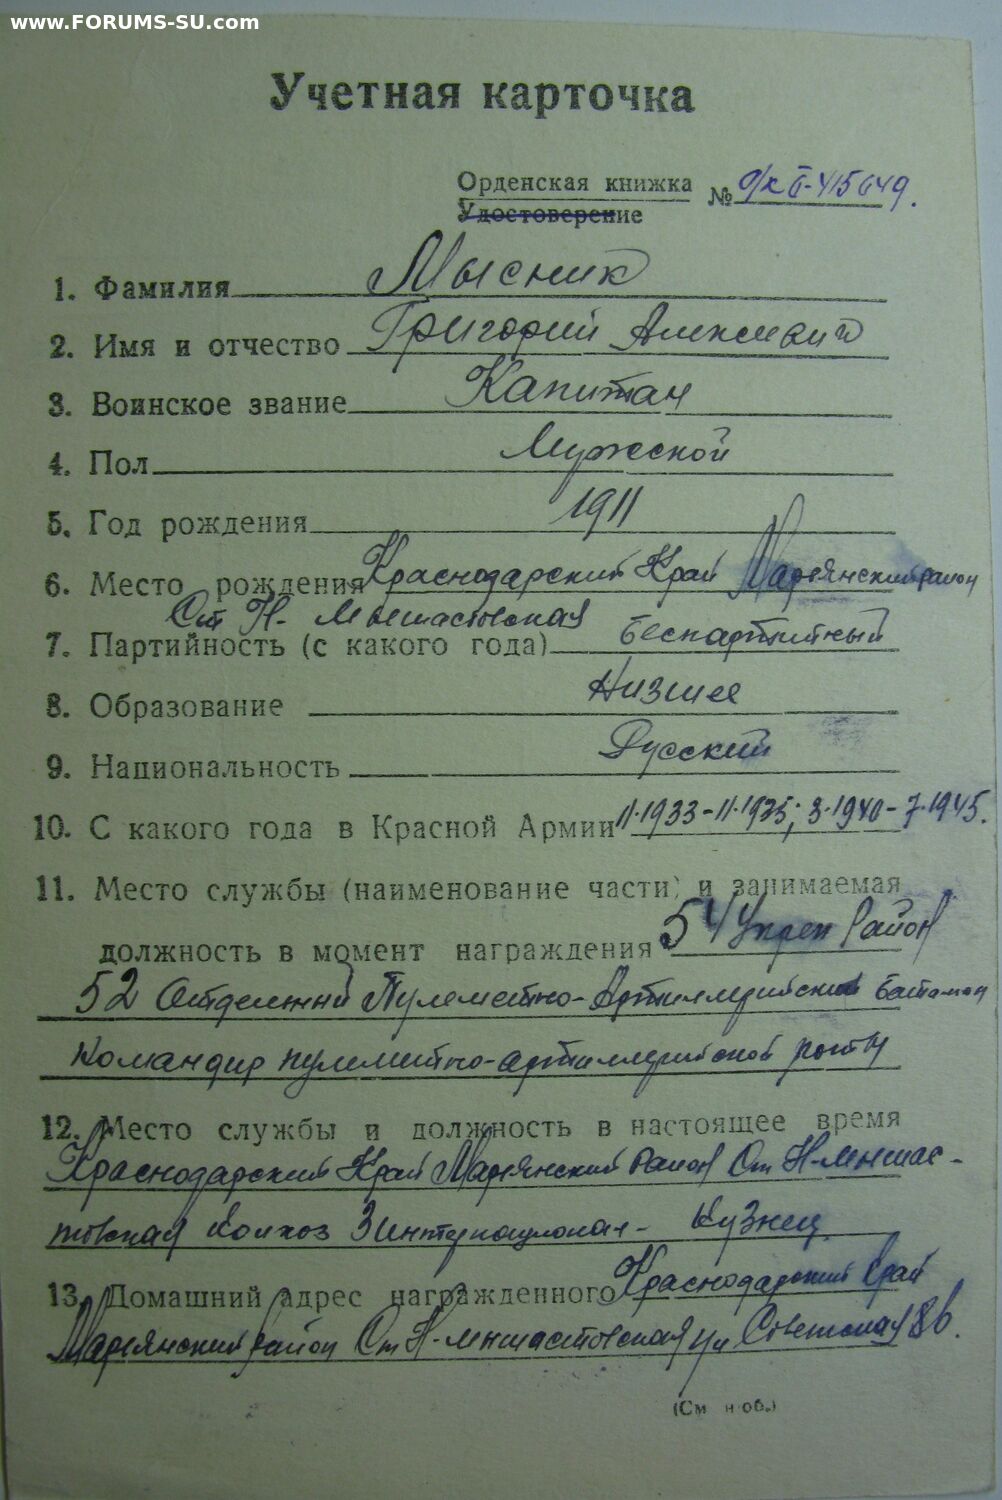 www.FORUMS-SU.com
Учетная карточка
Орденская книжка
Удостоверение
№ о/к Б-415649.
1. Фамилия Мысник
2. Имя и отчество Григорий
3. Воинское звание Капитан
4. Пол Мужской
5. Год рождения 1911
6. Место рождения Краснодарский Край Марьянский район
Ст Н-Мышастовская
7. Партийность (с какого года) беспартийный
8. Образование Низшее
9. Национальность Русский
10. С какого года в Красной Армии 11.1933-11.1935; 3.1940-7.1945.
11. Место службы (наименование части) и занимаемая
должность в момент награждения 54 Укреп Район
52 Отдельний Пулеметно-Артиллерийский батальон
Командир пулеметно-артиллерийской роты
12. Место службы и должность в настоящее время
Краснодарский Край Марьянский район Ст Н-Мышас-
товская Колхоз 3 Интернационал- Кузнец
13. Домашний адрес награжденного Краснодарский Край
Марьянский район Ст Н-Мышастовская ул Советская 86.
(См н об.)